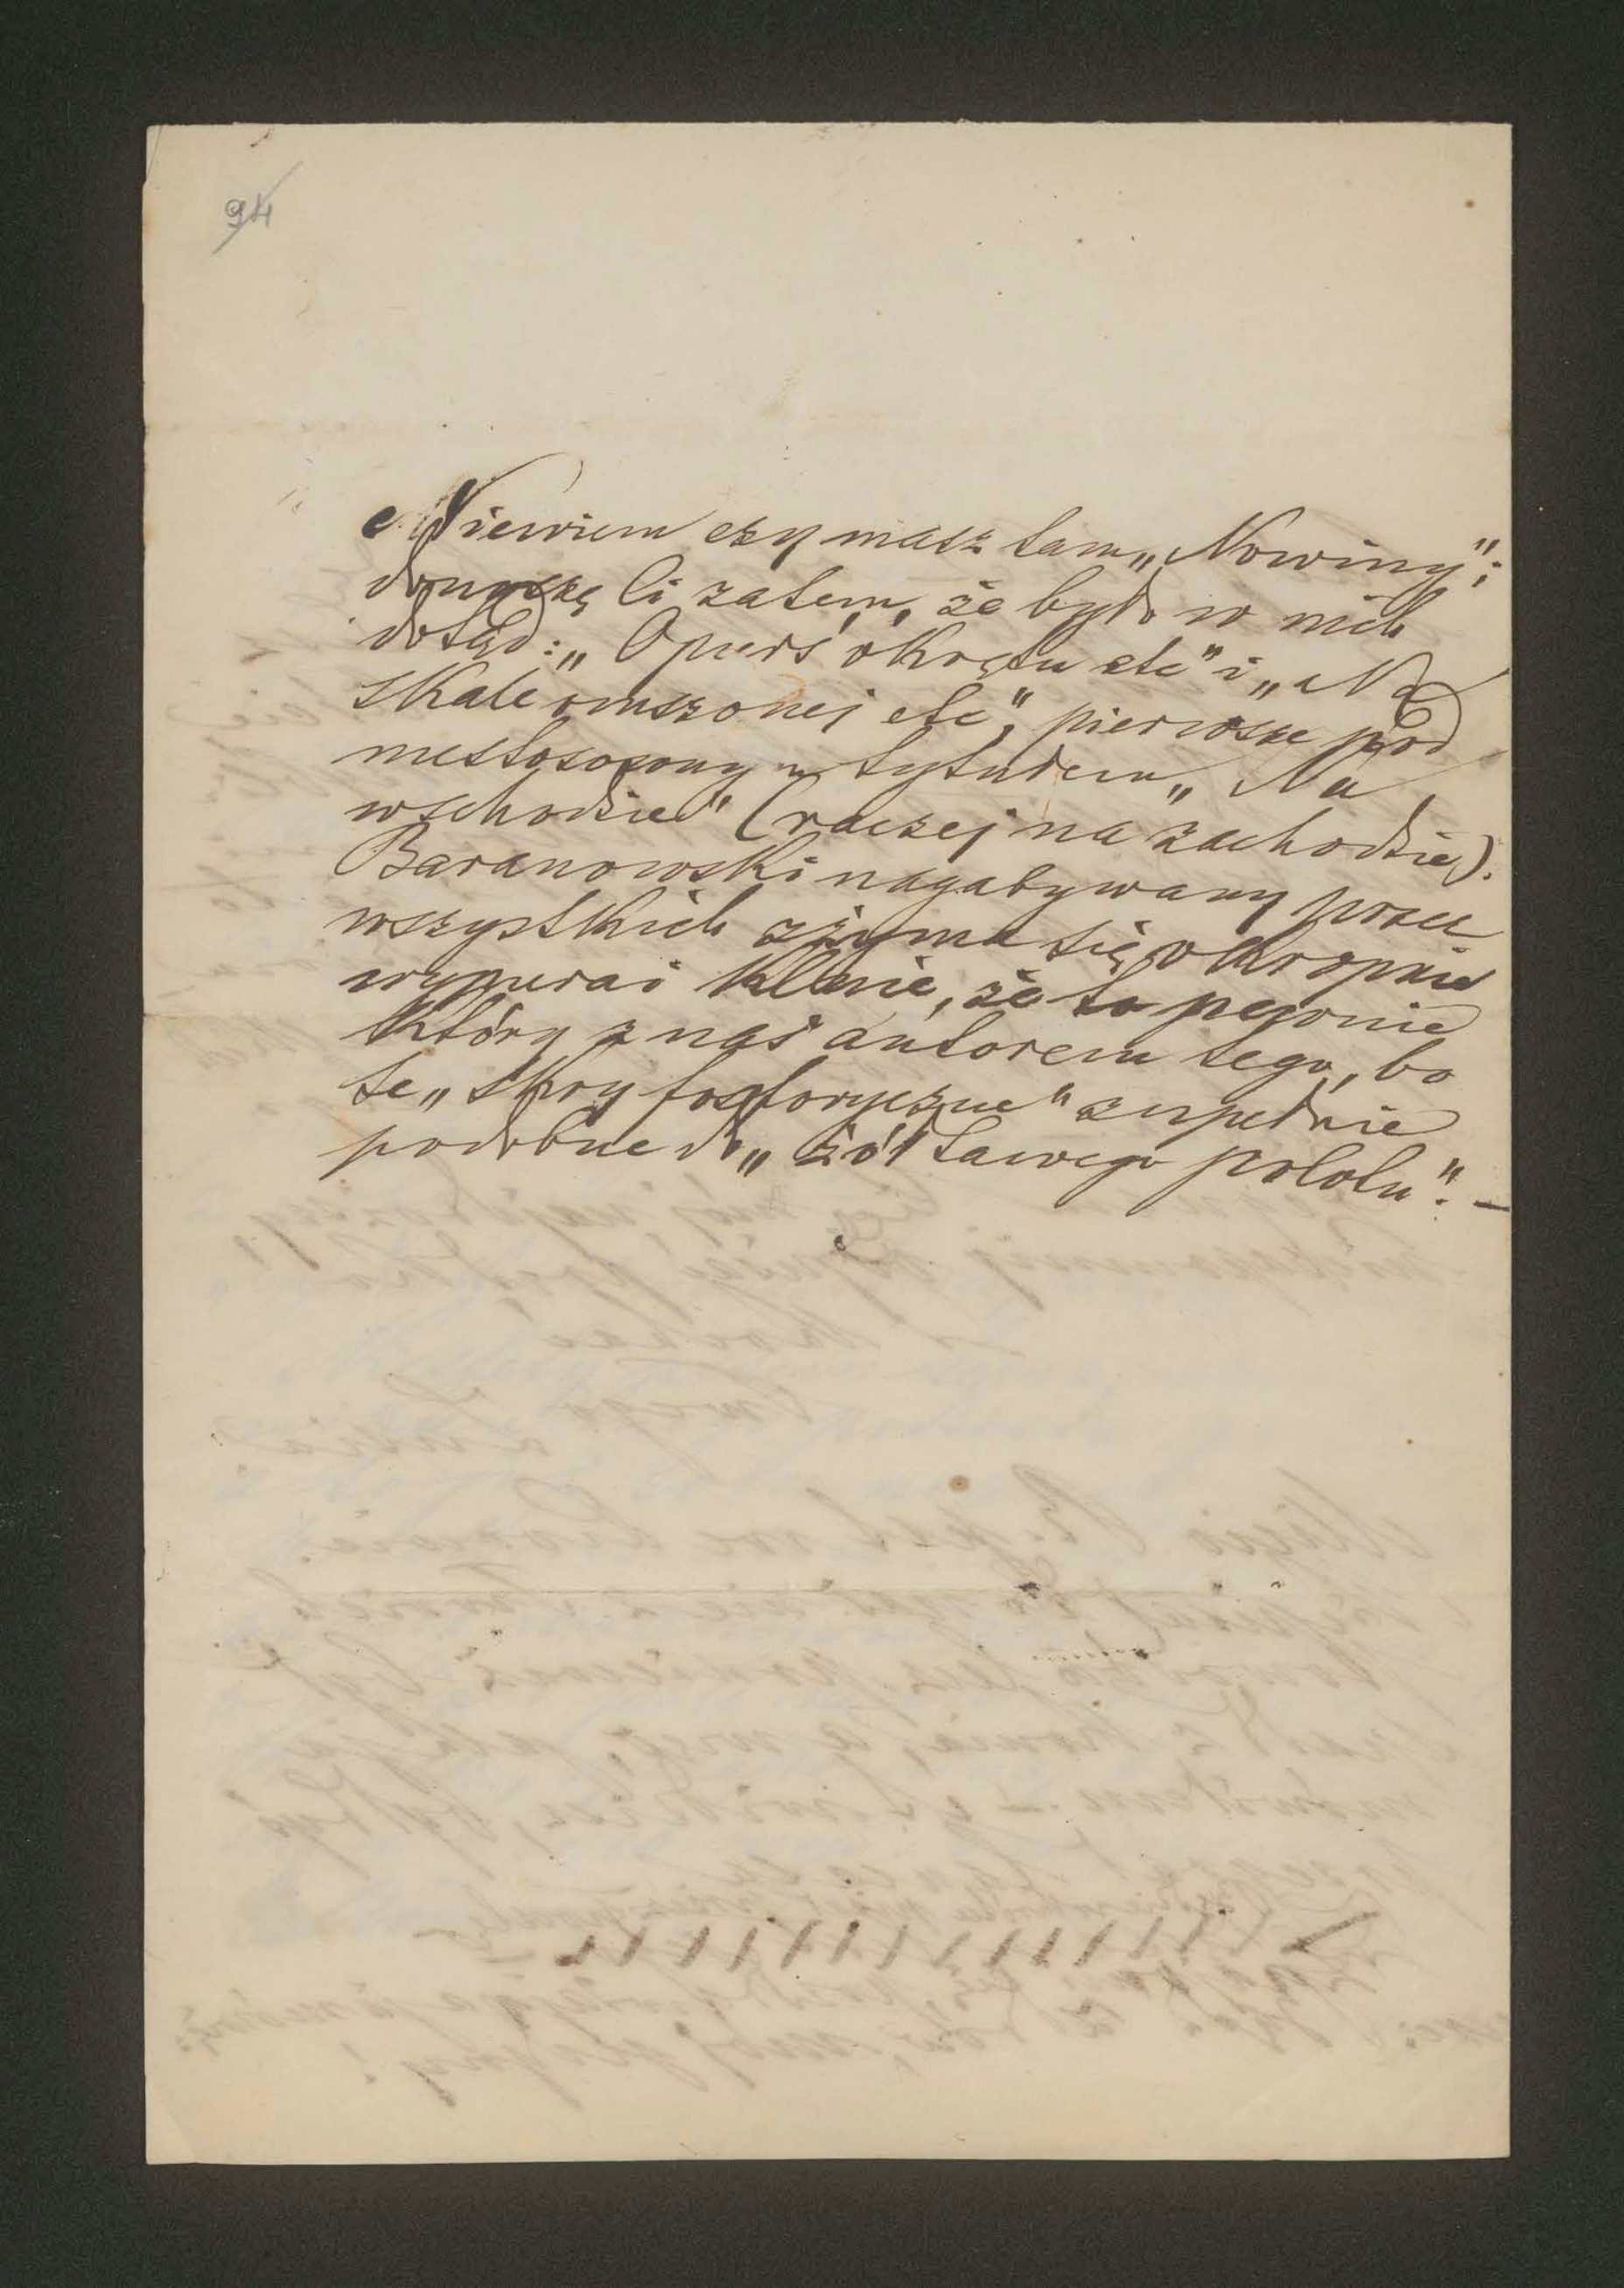 94
Niewiem czy masz tam „Nowiny";
donoszę Ci zatem, że było w nich
dotąd: „Opuść okrętu etc" i „Na
skale omszonej etc", pierwsze pod
niestosownym tytułem „Na
wschodzie" (raczej na zachodzie).
Baranowski nagabywany przez
wszystkich zżyma się okropnie
wypiera i klnie, że to pewnie
który z nas autorem tego, bo
te „skry fosforyczne" zupełnie
podobne do „żółtawego polotu". –